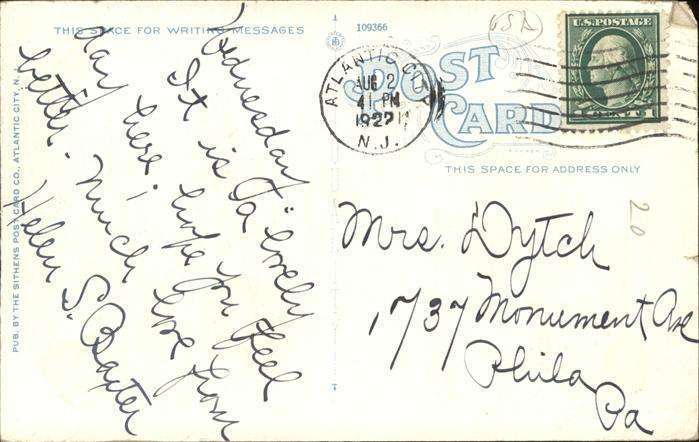 THIS SPACE FOR WRITING MESSAGES
109366
USA
U.S. POSTAGE
POST
CARD
ATLANTIC CITY
AUG 2
4 PM
1927
N.J.
THIS SPACE FOR ADDRESS ONLY
20
PUB. BY THE SITHENS POST CARD CO., ATLANTIC CITY, N. J.
Wednesday:
It is a lovely
day here, i hope you feel
better. Much love from
Helen S. Baxter
Mrs. Dytch
1737 Monument Ave
Phila
Pa